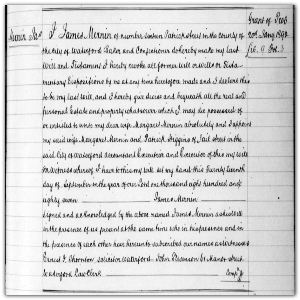 I James Mernin of number sixteen Patrick street in the county of
the City of Waterford Baker and Confectioner do hereby make my last
Will and Testament I hereby revoke all former wills or wills or Testa
mentary Dispositions by me at any time heretofore made and I declare this
to be my last will, and I hereby give devise and bequeath all the real and
personal Estate and property whatsoever which I may die possessed of
or entitled to unto my dear wife Margaret Mernin absolutely and I appoint
my said wife Margaret Mernin and Patrick Higgins of said street in the
said City of Waterford accountant Executrix and Executor of this my will
In witness whereof I have to this my will set my hand this twenty seventh
day of September in the year of our Lord one thousand eight hundred and
eighty seven James Mernin
Signed and acknowledged by the above named James Mernin as his will
in the presence of us present at the same time who in his presence and in
the presence of each other have hereunto subscribed our names as witnesses
Ernest J. Thornton Solicitor Waterford John Dicenson 21 Manor street
Waterford Law Clerk
Grant of Prob